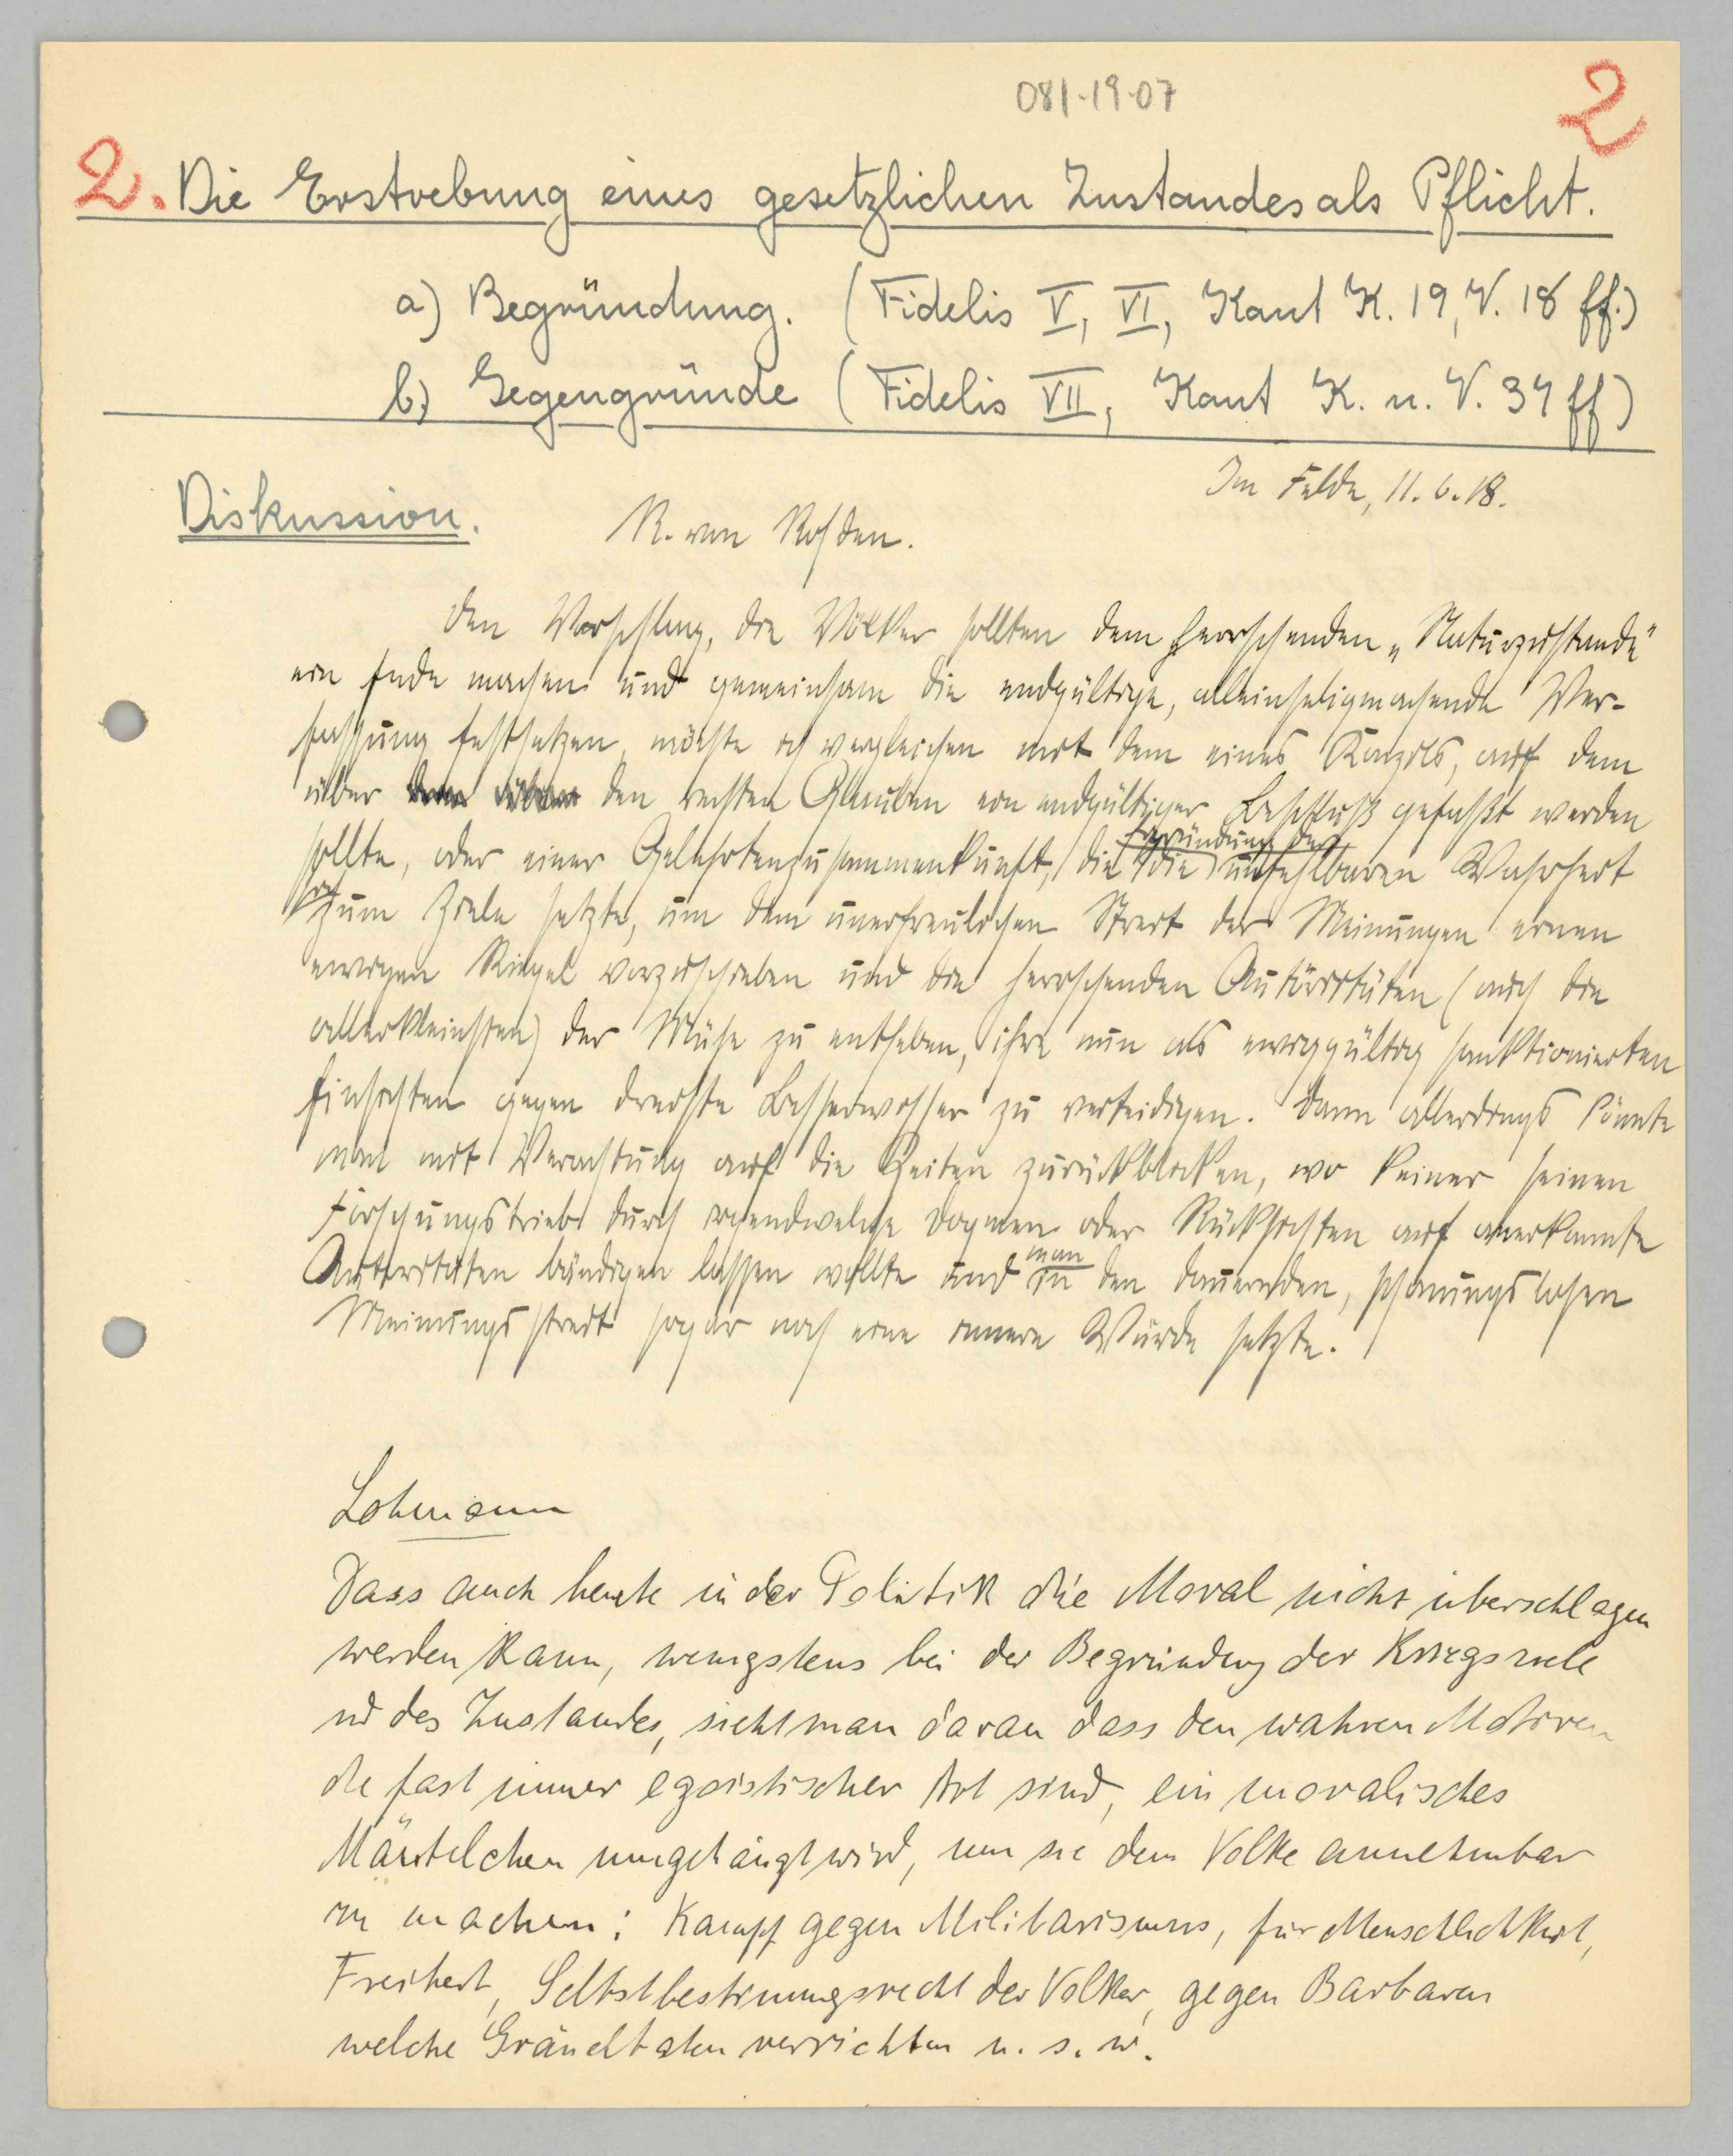 081-19-07
2
2. Die Erstrebung eines gesetzlichen Zustandes als Pflicht.
a) Begründung. (Fidelis V, VI, Kant K. 19, V. 18 ff.)
b) Gegengründe (Fidelis VII, Kant K. u. V. 34 ff)
Im Felde, 11.6.18.
Diskussion. R. von
Den Vorschlag, die Völker sollten dem herrschenden „Naturzustande"
ein Ende machen und gemeinsam die endgültige, alleinseligmachende Ver-
fassung festsetzen, möchte ich vergleichen mit dem eines Konzils, auf dem
über den rechten Glauben ein endgültiger Beschluß gefaßt werden
Ergründung der
sollte, oder einer Gelehrtenzusammenkunft, die die unfehlbaren Wahrheit
sich zum Ziele setzte, um dem unerfreulichen Streit der Meinungen einen
ewigen Riegel vorzuschieben und die herrschenden Autoritäten (auch die
allerkleinsten) der Mühe zu entheben, ihre nun als ewiggültig sanktionierten
Einsichten gegen dreiste Besserwisser zu verteidigen. Dann allerdings könnte
man mit Verachtung auf die Zeiten zurückblicken, wo keiner seinen
Forschungstrieb durch irgendwelche Dogmen oder Rücksichten auf anerkannte
man
Autoritäten bändigen lassen wollte und in den dauernden, schonungslosen
Meinungsstreit sogar noch eine innere Würde setzte.
Lohmann
Dass auch heute in der Politik die Moral nicht überschlagen
werden kann, wenigstens bei der Begründung der Kriegsziele
und des Zustandes, sieht man daran dass den wahren Motiven
die fast immer egoistischer Art sind, ein moralisches
Mäntelchen umgehängt wird, um sie dem Volke annehmbar
zu machen: Kampf gegen Militarismus, für Menschlichkeit,
Freiheit, Selbstbestimmungsrecht der Völker, gegen Barbaren
welche Gräueltaten verrichten u. s. w.